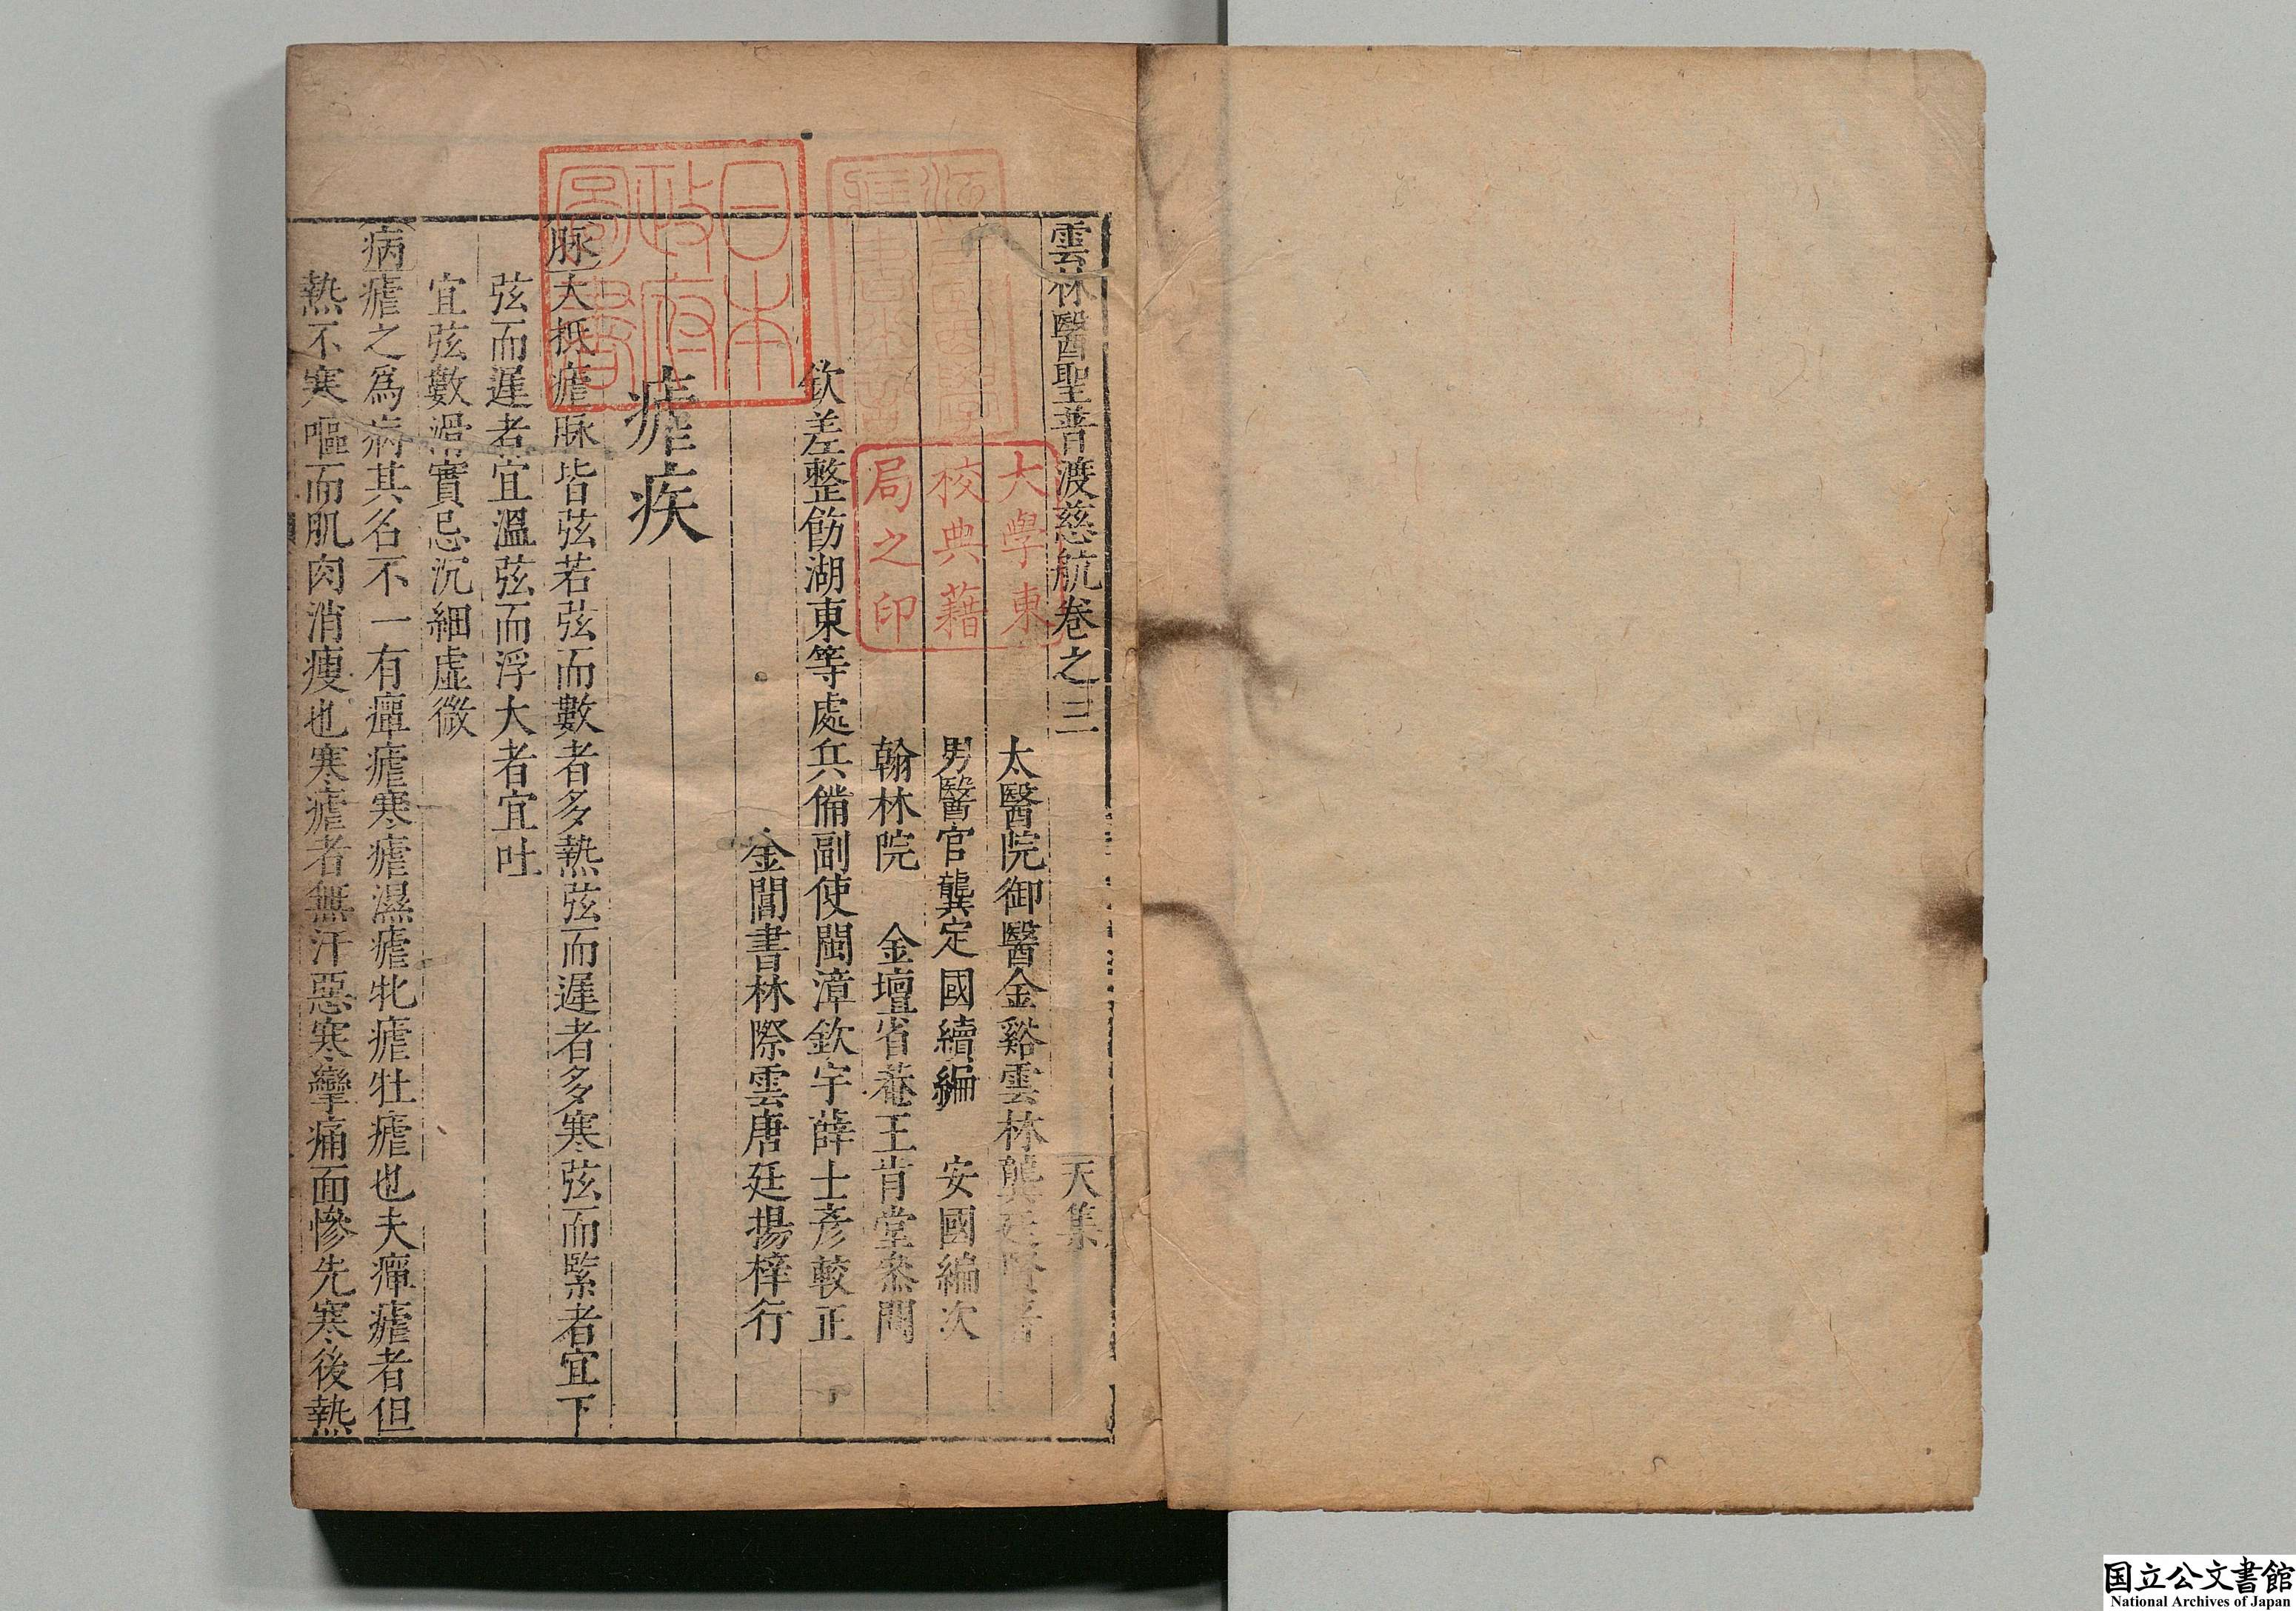 雲林醫聖普渡慈航卷之三 天集
太醫院御醫金谿雲林龔廷賢著
男醫官龔定國續編 安國編次
翰林院 金壇省菴王肯堂叅閱
欽差整飭湖東等處兵備副使閩漳欽宇薛士彥較正
金閶書林際雲唐廷揚梓行
瘧疾
脉大抵瘧脉皆弦若弦而數者多熱弦而遲者多寒弦而緊者宜下
弦而遲者宜溫弦而浮大者宜吐
宜弦數滑實忌沉細虛微
病瘧之爲病其名不一有癉瘧寒瘧濕瘧牝瘧牡瘧也夫癉瘧者但
熱不寒嘔而肌肉消瘦也寒瘧者無汗惡寒攣痛面慘先寒後熱
日本
政府
圖書
大學東
校典籍
局之印
国立公文書館
National Archives of Japan